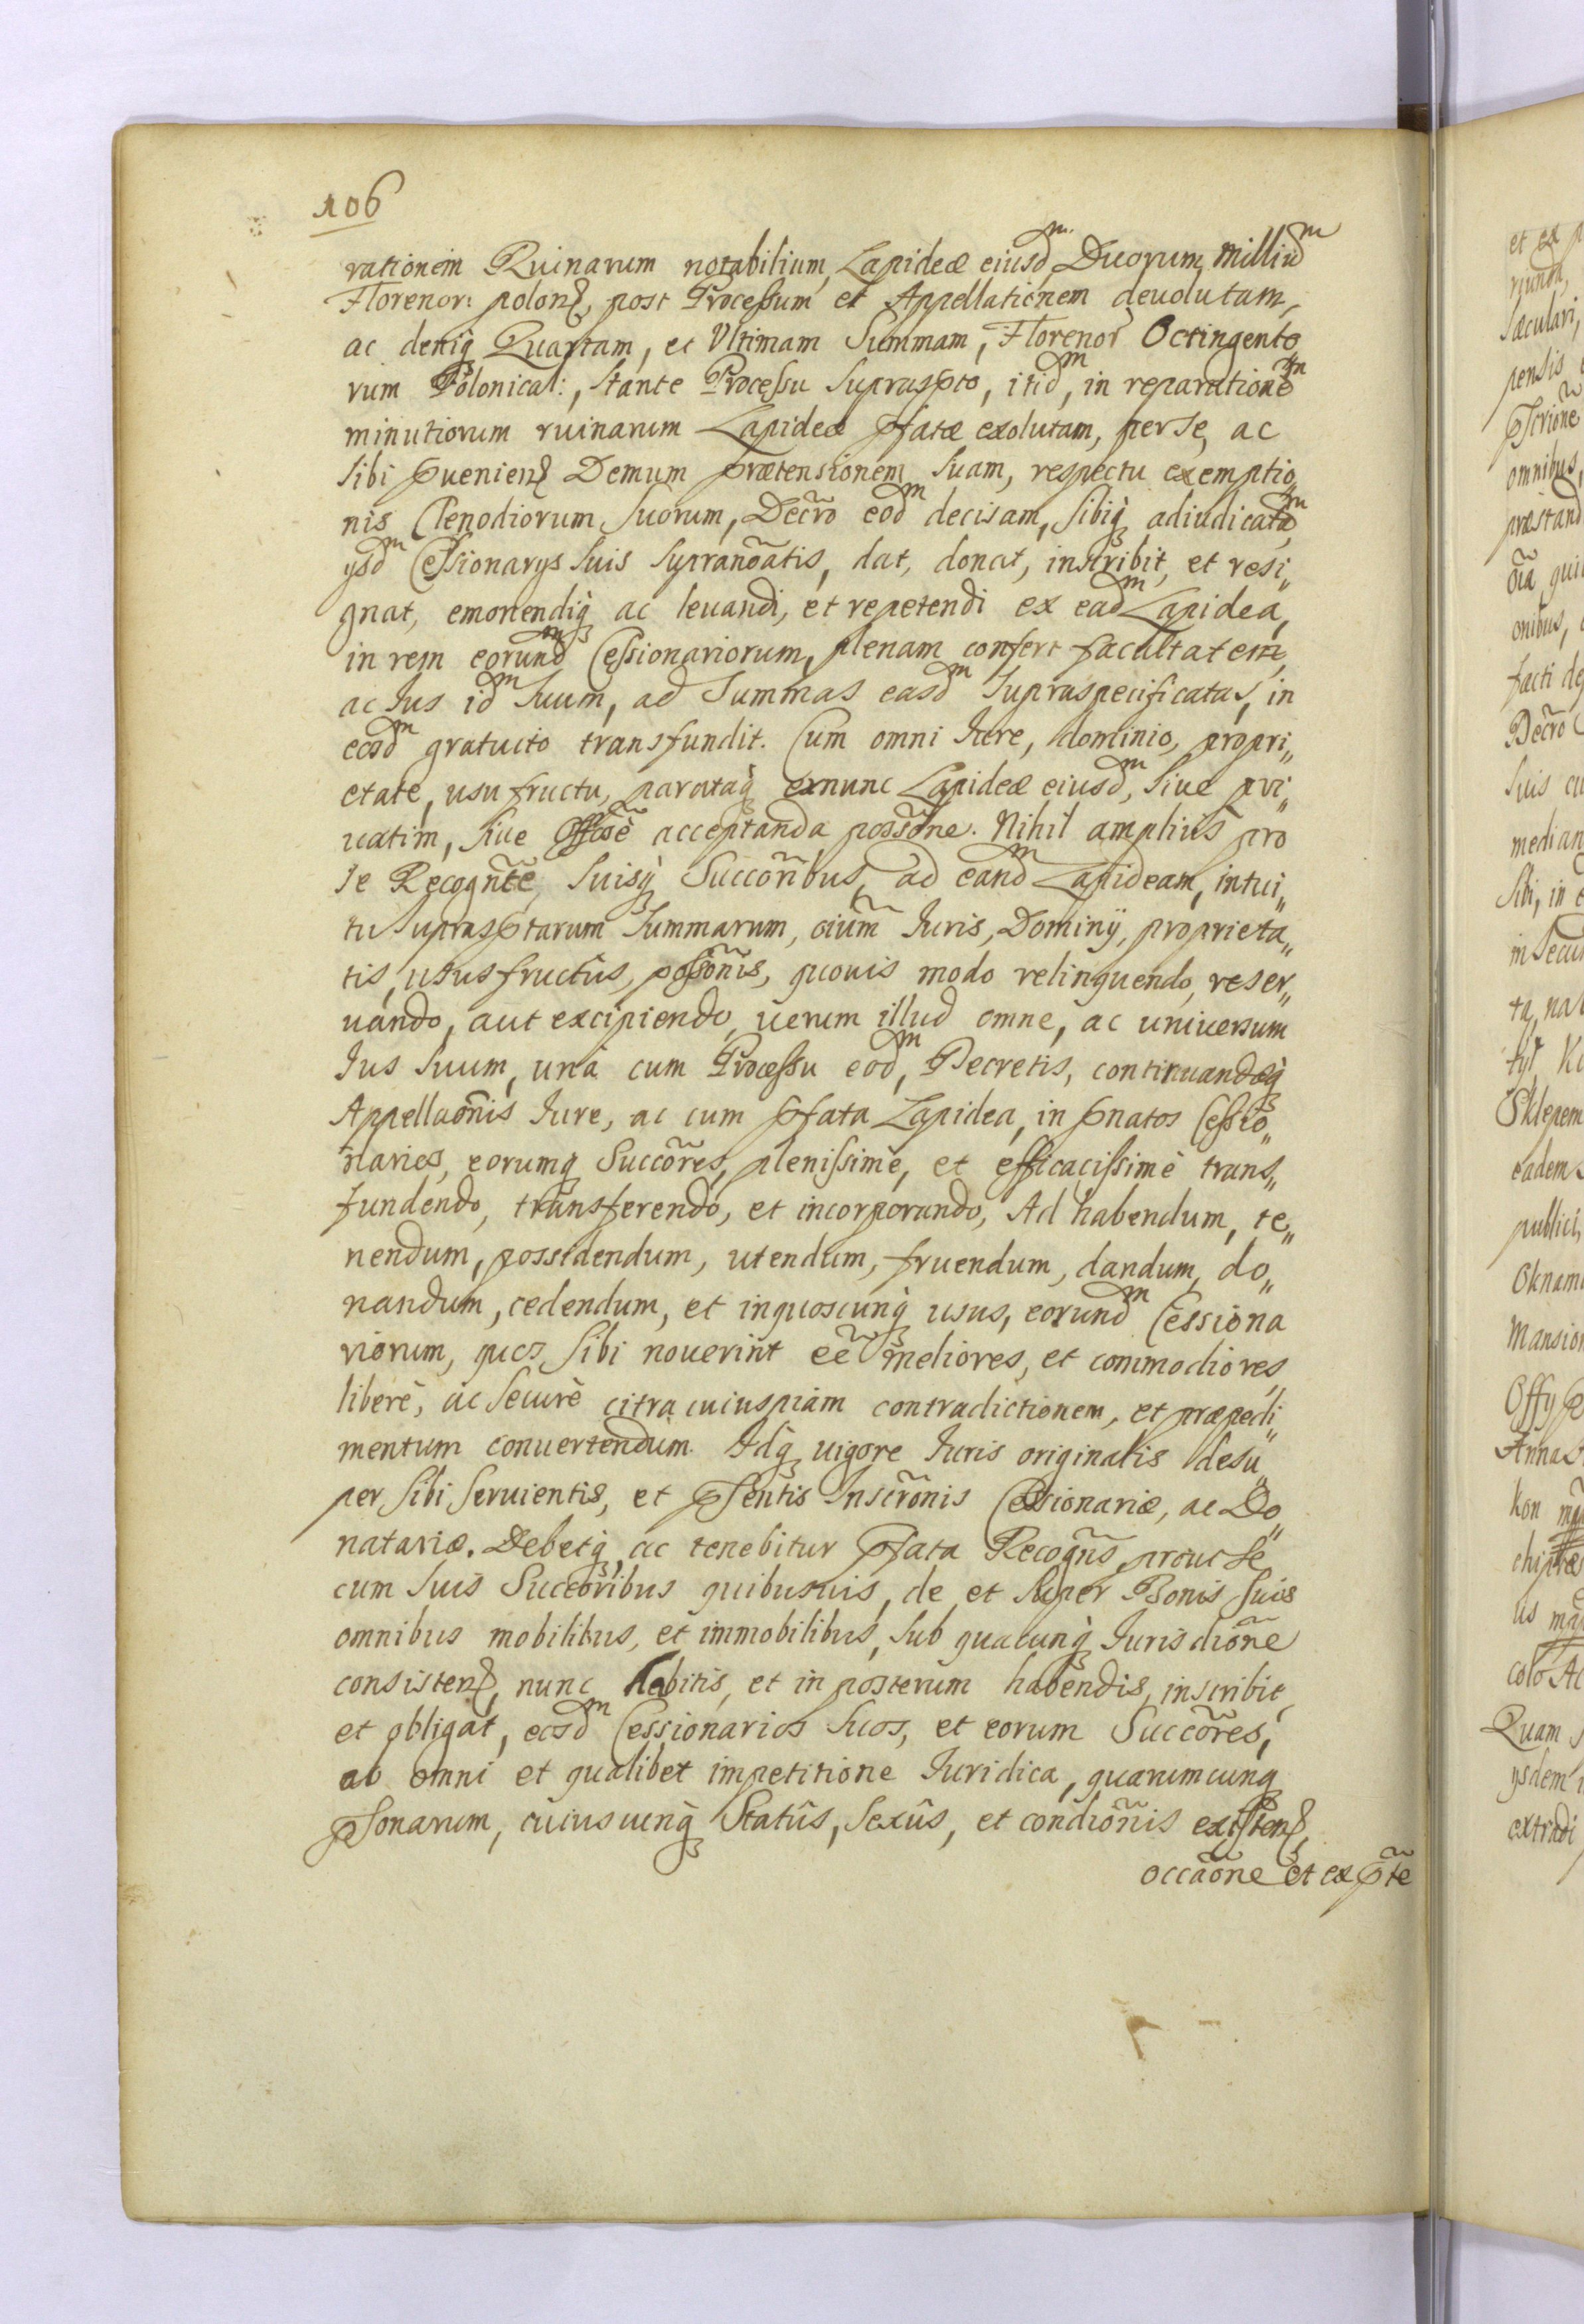 106
rationem Ruinarum notabilium, Lapideæ eiusdm. Duorum milliũdm
Florenor: polonꝭ, post Processum et Appellationem deuolutam,
ac deniq Quartam, et Vltimam Summam, Florenor̃ Octingento„
rum Polonical:, stante Processu supraspto, itidm, in reparationẽm
minutiorum ruinarum Lapideæ pfatæ exolutam, per se, ac
sibi puenienꝭ Demum prætensionem suam, respectu exemptio„
nis Clenodiorum suorum, Decr̃o eodm decisam, sibiq adiudicatãm
ysdm Cessionarys suis supranõatis, dat, donat, inscribit, et resi„
gnat, emonendiq ac leuandi, et repetendi ex eadm Lapidea,
in rem eorundm Cessionariorum, plenam confert facultatem,
ac Ius idm suum, ad Summas easdm supraspecificatas, in
eosdm gratuito transfundit. Cum omni Iure, dominio, propri„
etate, usu fructu, parataq exnunc Lapideæ eiusdm, siue pri„
uatim, siue Offõsè acceptanda possõne. Nihil amplius pro
se Recognẽte, suisq Succor̃ibus, ad eandm Lapideam, intui„
tu suprasptarum Summarum, oium̃ Iuris, Dominÿ, proprieta„
tis, usus fructûs, possõnis, quouis modo relinquendo, reser„
uando, aut excipiendo, uerum illud omne, ac uniuersum
Ius suum, unà cum Processu eodm, Decretis, continuandæq
Appellaõnis Iure, ac cum pfata Lapidea, in pnatos Cessio„
narios, eorumq Succõres, plenissimè, et efficacissimè trans„
fundendo, transferendo, et incorporando, Ad habendum, te„
nendum, possidendum, utendum, fruendum, dandum, do„
nandum, cedendum, et inquoscunq usus, eorundm Cessiona
riorum, quos sibi nouerint eẽ meliores, et commodiores
liberè, ac securè citra cuiuspiam contradictionem, et præpedi„
mentum conuertendum. Idq uigore Iuris originalis desu„
per sibi seruientis, et psentis Inscrõnis Cessionariæ, ac Do„
natariæ. Debetq, ac tenebitur pfata Recogñs, prout se
cum suis Succoribus quibusuis, de et super Bonis suis
omnibus mobilibus, et immobilibus, sub quacunq Iurisdiõne
consistenꝭ, nunc habitis, et in posterum habendis, inscribit
et obligat, eosdm Cessionarios suos, et eorum Succõres,
ab omni et qualibet impetitione Iuridica, quarumcunq
psonarum, cuiusuenq Statûs, sexûs, et condiõnis existenꝭ,
occaõne et ex pt̃e